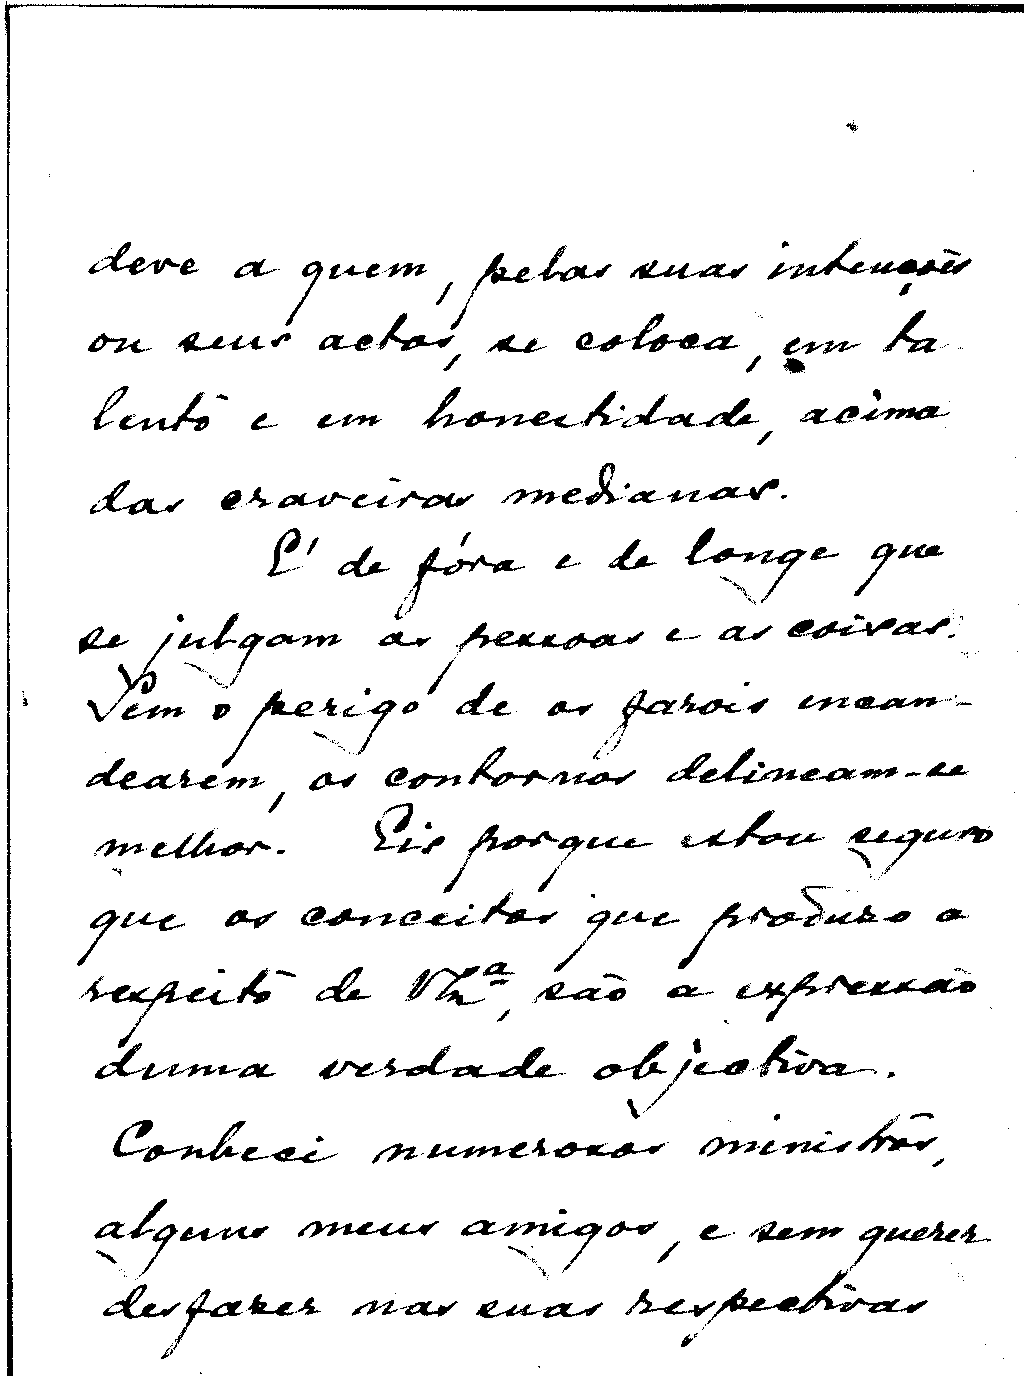 deve a quem, pelas suas intenções
ou seus actos, se coloca, em ta
lento e em honestidade, acima
das craveiras medianas.
E' de fóra e de longe que
se julgam as pessoas e as coisas.
Sem o perigo de os farois encan-
dearem, os contornos delineam-se
melhor. Eis porque estou seguro
que os conceitos que produzo a
respeito de são a expressão
duma verdade objectiva.
Conheci numerosos ministros,
alguns meus amigos, e sem querer
desfazer nas suas respectivas